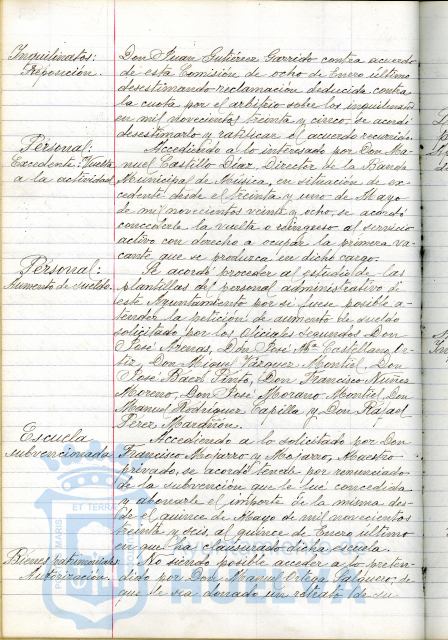 Inquilinatos:
Reposición.
Don Juan Gutiérrez Garrido contra acuerdo
de esta Comisión de ocho de Enero último
desestimando reclamación deducida contra
la cuota por el arbitrio sobre los inquilinatos
en mil novecientos treinta y cinco se acordó
desestimarlo y ratificar el acuerdo recurrido.
Personal:
Excedente: Vuelta
a la actividad
Accediendo a lo interesado por Don Ma-
nuel Castillo Díaz, Director de la Banda
Municipal de Música, en situación de ex-
cedente desde el treinta y uno de Mayo
de mil novecientos veinte y ocho, se acordó
concederle la vuelta o reingreso al servicio
activo con derecho a ocupar la primera va-
cante que se produzca en dicho cargo.
Personal:
Aumento de sueldo.
Se acordó proceder al estudio de las
plantillas del personal administrativo de
este Ayuntamiento por si fuese posible a-
tender la petición de aumento de sueldo
solicitado por los Oficiales Segundos Don
José Arenas, Don José Mª Castellano Or-
tiz, Don Miguel Vázquez Montiel, Don
José Báez Pinto, Don Francisco Núñez
Moreno, Don José Morano Montiel, Don
Manuel Rodríguez Capilla y Don Rafael
Pérez
Escuela
subvencionada
Accediendo a lo solicitado por Don
Francisco Mojarro y Mojarro, Maestro
privado, se acordó tenerle por renunciado
de la subvención que le fué concedida
y abonarle el importe de la misma des-
de el quince de Mayo de mil novecientos
treinta y seis, al quince de Enero último
en que ha clausurado dicha escuela.
Bienes patrimoniales
Autorización.
No siendo posible acceder a lo preten-
dido por Don Manuel Ortega Salguero, de
que le sea donado un retrato de su
ET TERRA
MARIS
HUELVA